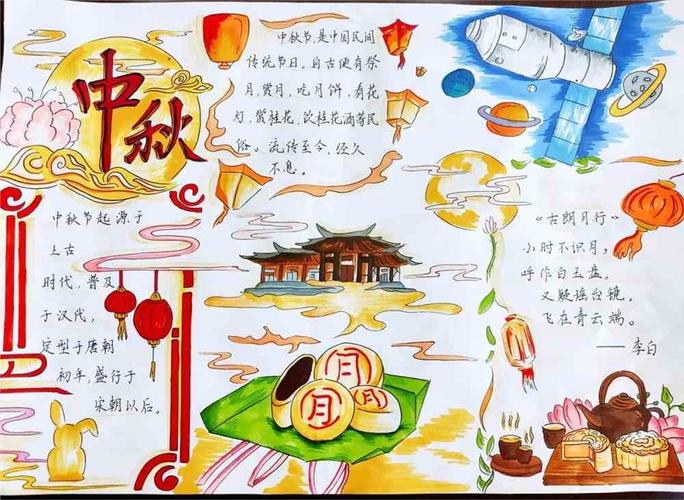 中秋
中秋节,是中国民间
传统节日。自古便有祭
月,赏月,吃月饼,看花
灯,赏桂花,饮桂花酒等民
俗。流传至今,经久
不息。
中秋节起源于
上古
时代,普及
于汉代,
定型于唐朝
初年,盛行于
宋朝以后。
《古朗月行》
小时不识月,
呼作白玉盘。
又疑瑶台镜,
飞在青云端。
——李白
月
月